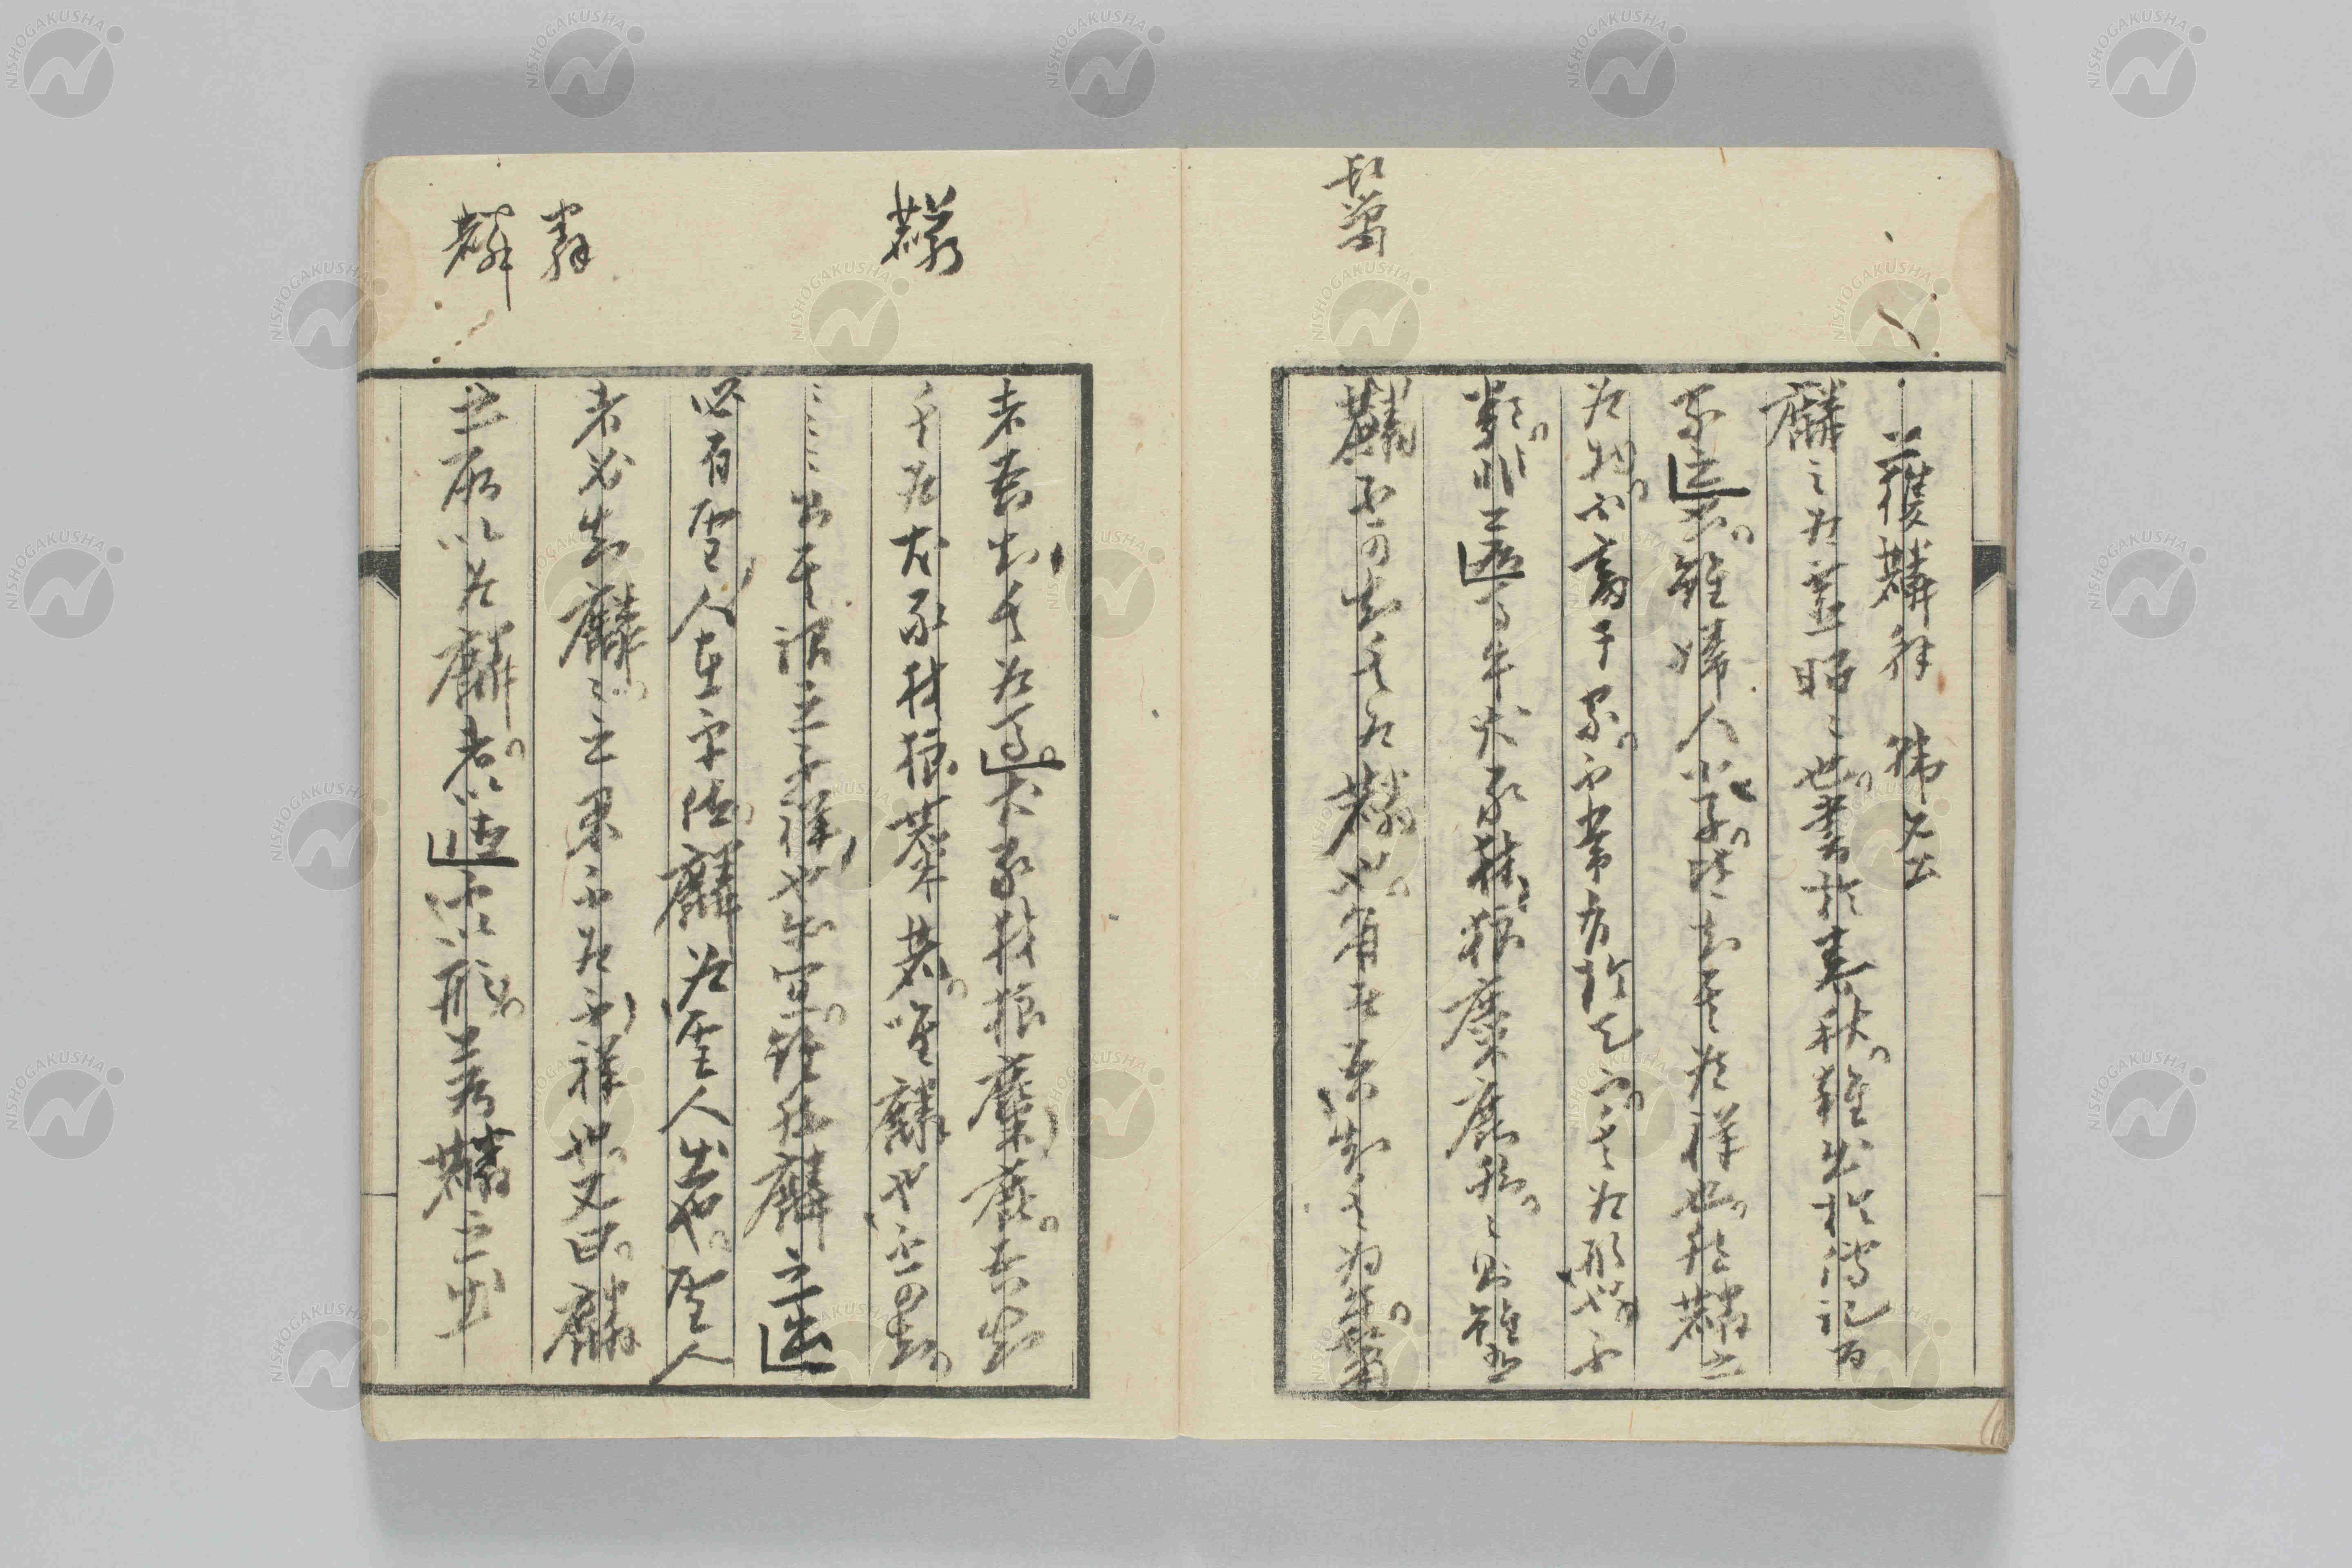 獲麟解 韓文公
麟之為靈昭〻也。書於春秋。雜出於傳記百
家之書。雖婦人小子。皆知其為祥也。然麟之
為物。不畜于家。不常有於天下。其為形也不
類。非若馬牛犬豕豺狼麋鹿然。〻則雖有
麟不可知其為麟也。角者吾知其為牛鬣
者吾知其為馬。犬豕豺狼麋鹿。吾知
其為犬豕豺狼麋鹿。唯麟也不可知。
〻〻〻〻出其謂之不祥也亦宜。雖然麟之出
必有聖人在乎位。麟為聖人出也。聖人
者必知麟。〻之果不為不祥也。又曰。麟
之所以為麟者。以德不以形。若麟之出
髟鬣
麟
麟
麟
NISHOGAKUSHA